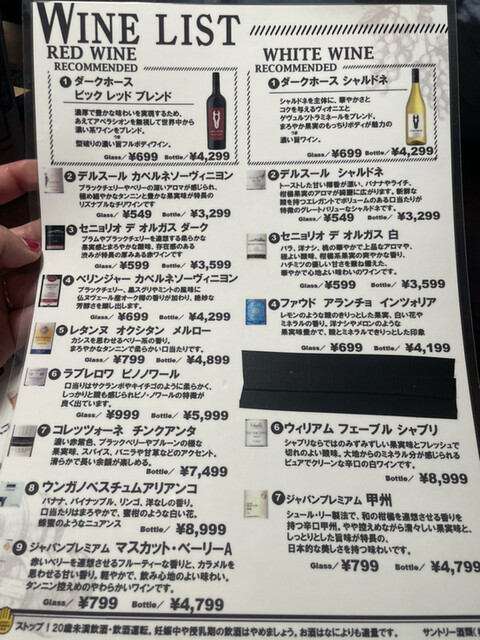 WINE LIST
RED WINE
RECOMMENDED
1 ダークホース
ビック レッド ブレンド
濃厚で豊かな味わいを実現するため、
あえてアペラシオンを無視して世界中から
濃い系ワインをブレンド。
型破りの濃い旨フルボディワイン。
Glass/ ¥699 Bottle/ ¥4,299
2 デルスール カベルネソーヴィニヨン
ブラックチェリーやベリーの濃いアロマが感じられ、
極め細やかなタンニンと豊かな果実味が特長の
リーズナブルなチリワインです
Glass/ ¥549 Bottle/ ¥3,299
3 セニョリオ デ オルガス ダーク
プラムやブラックチェリーを連想する柔らかな
果実感とまろやかな酸味、存在感のある
渋みが特長の高まるある赤ワインです
Glass/ ¥599 Bottle/ ¥3,599
4 ベリンジャー カベルネソーヴィニヨン
ブラックチェリー、黒スグリやミントの風味に
仏ヌヴェール産オーク樽の香りが加わり、絶妙な
芳醇さを醸し出します。
Glass/ ¥699 Bottle/ ¥4,299
5 レタンヌ オクシタン メルロー
カシスを思わせるベリー系の香り。
まろやかなタンニンで柔らかい口当たりです。
Glass/ ¥799 Bottle/ ¥4,899
6 ラブレロワ ピノノワール
口当りはサクランボやイチゴのように柔らかく、
しっかりと酸も感じられピノ・ノワールの特徴が
良く出ています。
Glass/ ¥999 Bottle/ ¥5,999
7 コレッツォーネ チンクアンタ
濃い赤紫色、ブラックベリーやプルーンの様な
果実味、スパイス、バニラや甘草などのアクセント。
滑らかで長い余韻が楽しめる。
Bottle/ ¥7,499
8 ウンガノベスチュムアリアンコ
バナナ、パイナップル、リンゴ、洋なしの香り。
口当たりはまろやかで、蜜柑のような白い花、
蜂蜜のようなニュアンス
Bottle/ ¥8,999
9 ジャパンプレミアム マスカット・ベーリーA
赤いベリーを連想させるフルーティーな香りと、カラメルを
思わせる甘い香り。軽やかで、飲み心地のよい味わい。
タンニン控えめのやわらかいワインです。
Glass/ ¥799 Bottle/ ¥4,799
WHITE WINE
RECOMMENDED
1 ダークホース シャルドネ
シャルドネを主体に、華やかさと
コクを与えるヴィオニエと
ゲヴュルツトラミネールをブレンド。
まろやか果実のもっちりボディが魅力の
濃い旨ワイン。
Glass/ ¥699 Bottle/ ¥4,299
2 デルスール シャルドネ
トーストした甘い樽香が濃い、バナナやライチ、
柑橘系果実のアロマが綺麗に広がります。新鮮な
酸を持つエレガントでボリュームのある口当たりが
特徴のグレートバリューなシャルドネです。
Glass/ ¥549 Bottle/ ¥3,299
3 セニョリオ デ オルガス 白
バラ、洋ナシ、桃の華やかで上品なアロマや、
程よい酸味、柑橘系果実の爽やかな香り、
ハチミツの優しい甘さを兼ね備えた、
華やかで心地よい味わいのワインです。
Glass/ ¥599 Bottle/ ¥3,599
4 ファウド アランチョ インツォリア
レモンのような酸のきりっとした果実、白い花や
ミネラルの香り。洋ナシやメロンのような
果実味豊かで、酸とミネラルできりっとした印象
Glass/ ¥699 Bottle/ ¥4,199
6 ウィリアム フェーブル シャブリ
シャブリならではのみずみずしい果実味とフレッシュで
切れのよい酸味。大地からのミネラル分が感じられる
ピュアでクリーンな辛口の白ワインです。
Bottle/ ¥8,999
7 ジャパンプレミアム 甲州
シュール・リー製法で、和の柑橘を連想させる香りを
持つ辛口甲州。やや控えめながら清々しい果実味と、
しっとりとした旨味が特長の、
日本的な美しさを持つ味わいです。
Glass/ ¥799 Bottle/ ¥4,799
ストップ!20歳未満飲酒・飲酒運転。妊娠中や授乳期の飲酒はやめましょう。お酒はなによりも適量です。 サントリー酒類(